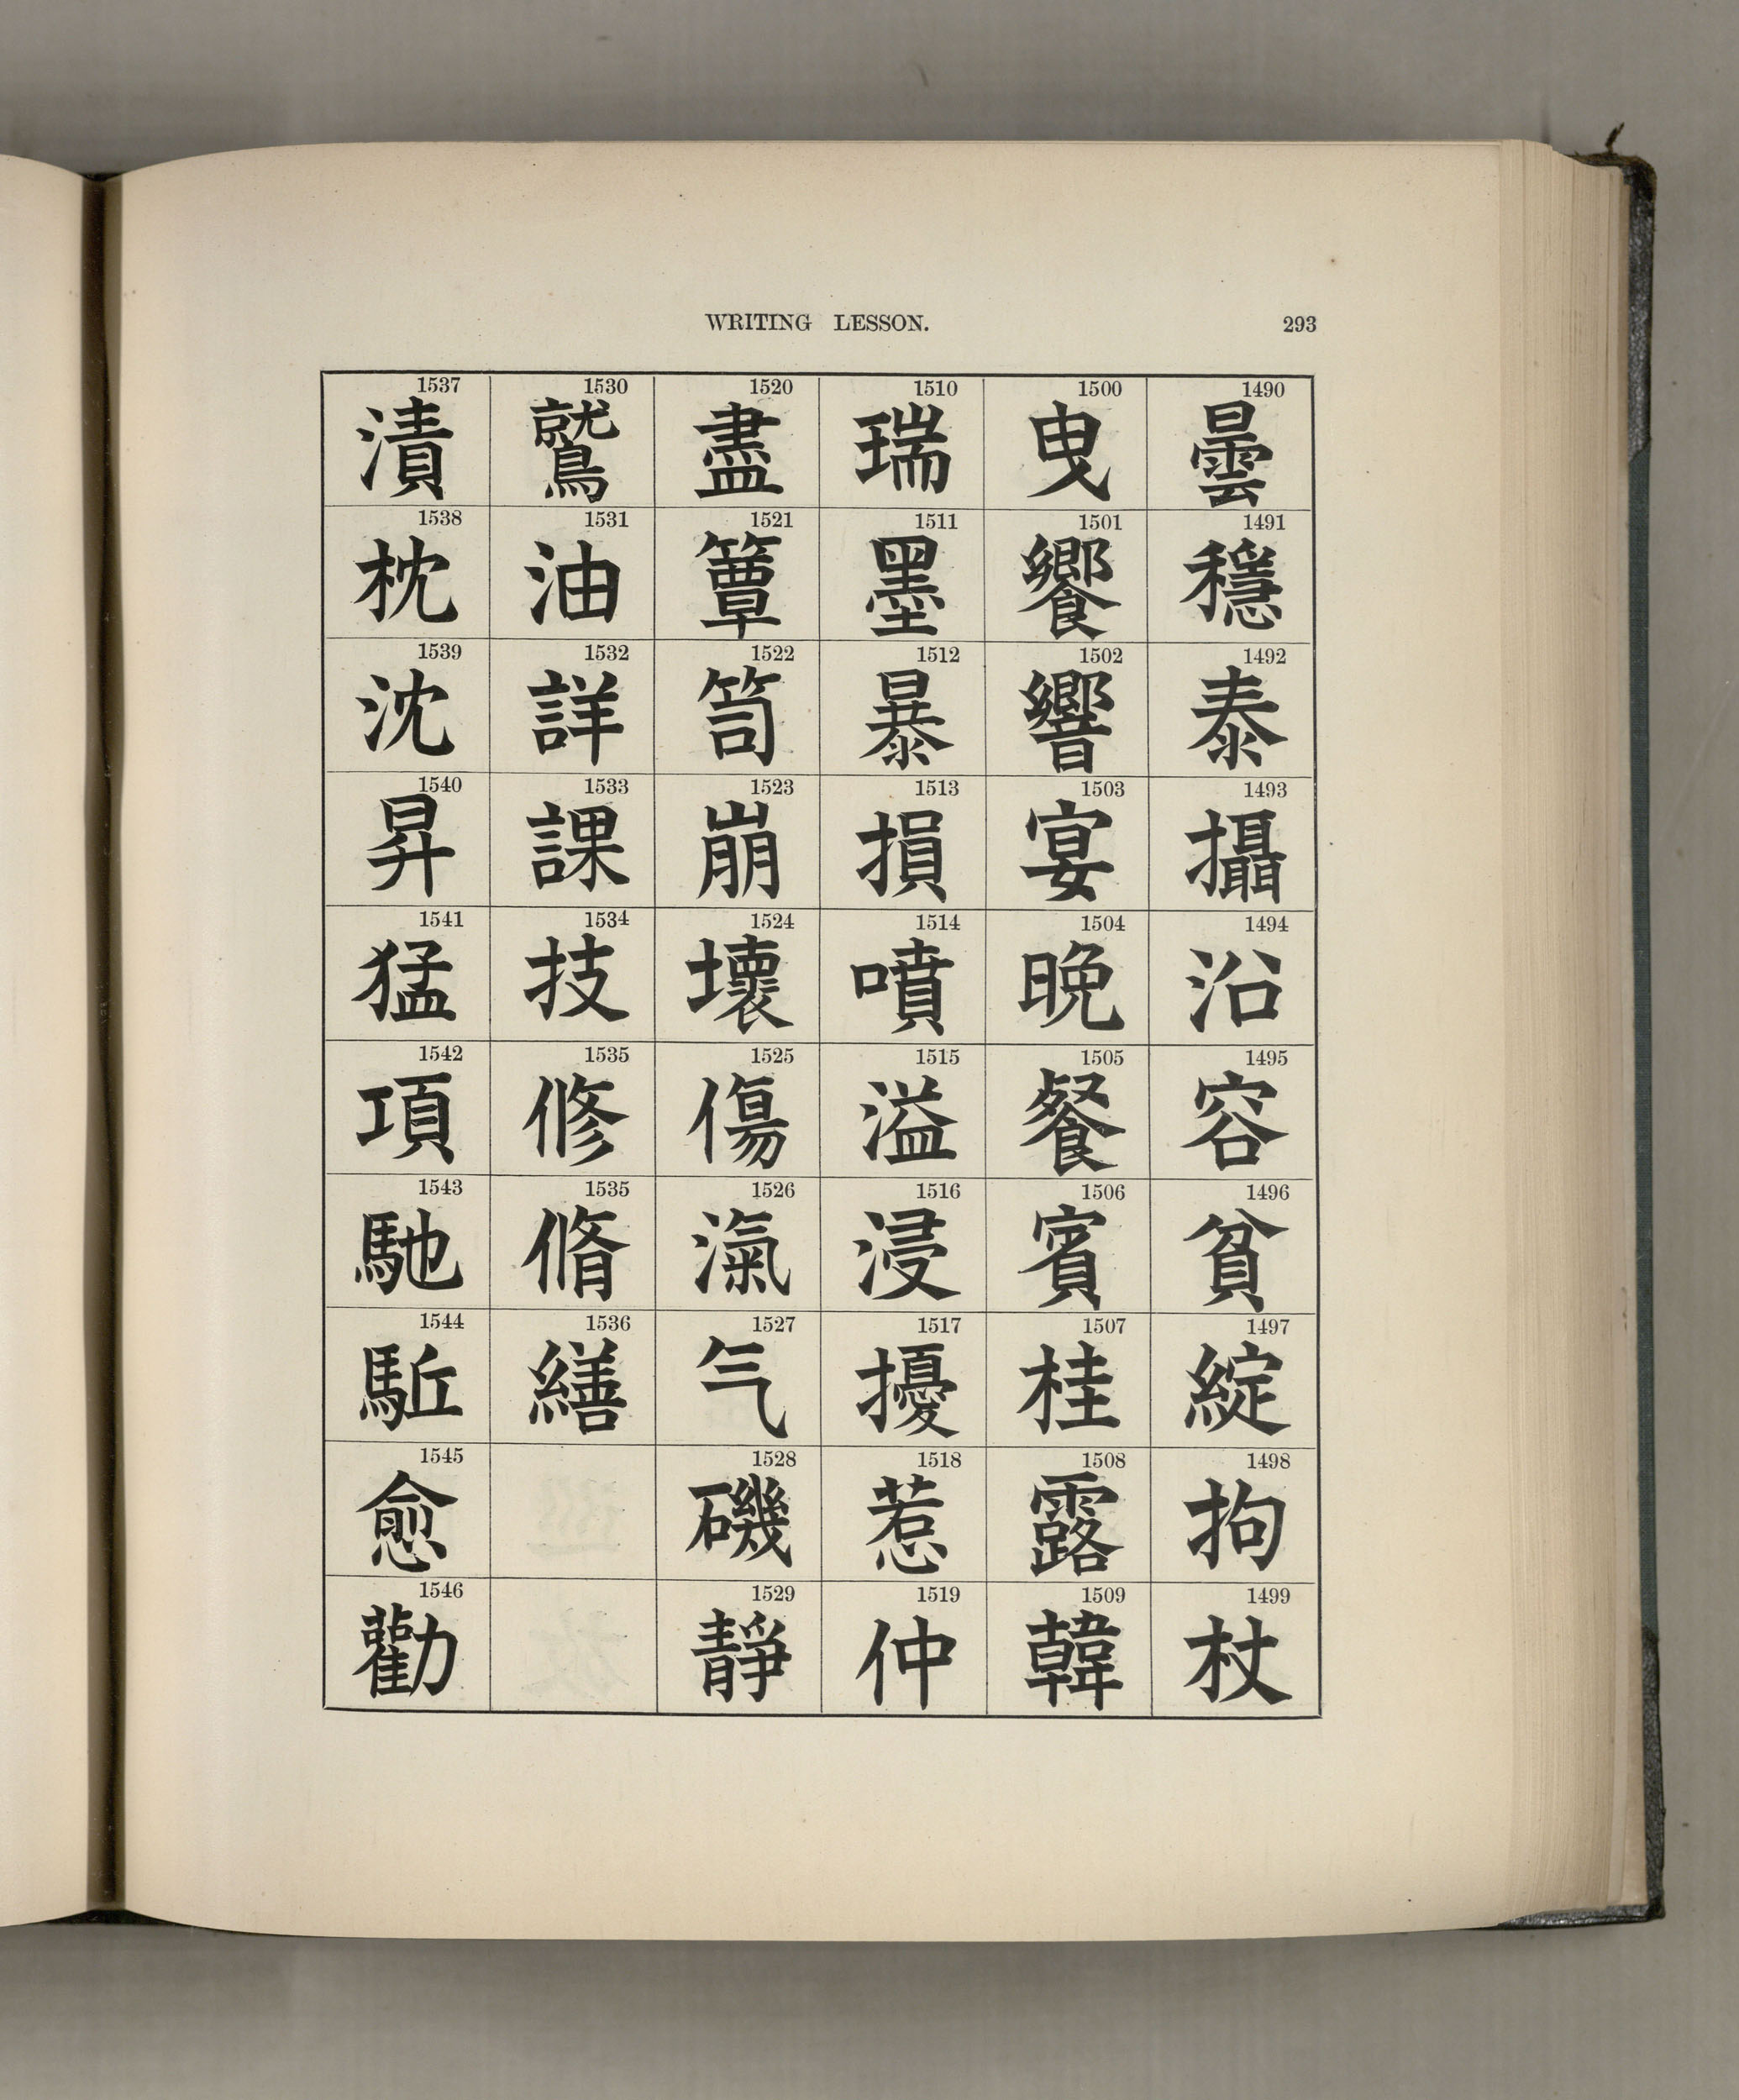 WRITING LESSON.
293
1490
曇
1491
穩
1492
泰
1493
攝
1494
沿
1495
容
1496
貧
1497
綻
1498
拘
1499
杖
1500
曳
1501
饗
1502
響
1503
宴
1504
晩
1505
餐
1506
賓
1507
桂
1508
露
1509
韓
1510
瑞
1511
墨
1512
暴
1513
損
1514
噴
1515
溢
1516
浸
1517
擾
1518
惹
1519
仲
1520
盡
1521
簟
1522
笥
1523
崩
1524
壞
1525
傷
1526
滊
1527
气
1528
磯
1529
靜
1530
鷲
1531
油
1532
詳
1533
課
1534
技
1535
修
1535
脩
1536
繕
1537
漬
1538
枕
1539
沈
1540
昇
1541
猛
1542
項
1543
馳
1544
駈
1545
愈
1546
勸